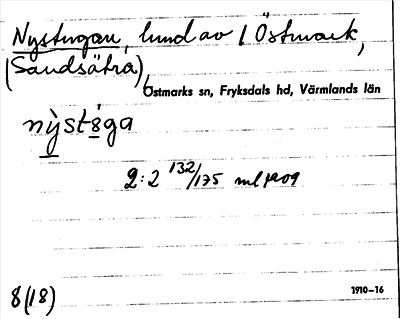 Nystugan, lund av / Östmark,
(Sandsätra),
Östmarks sn, Fryksdals hd, Värmlands län
nỳst8ga
2:2 132/175 ml 1909
8(18)
1910–16